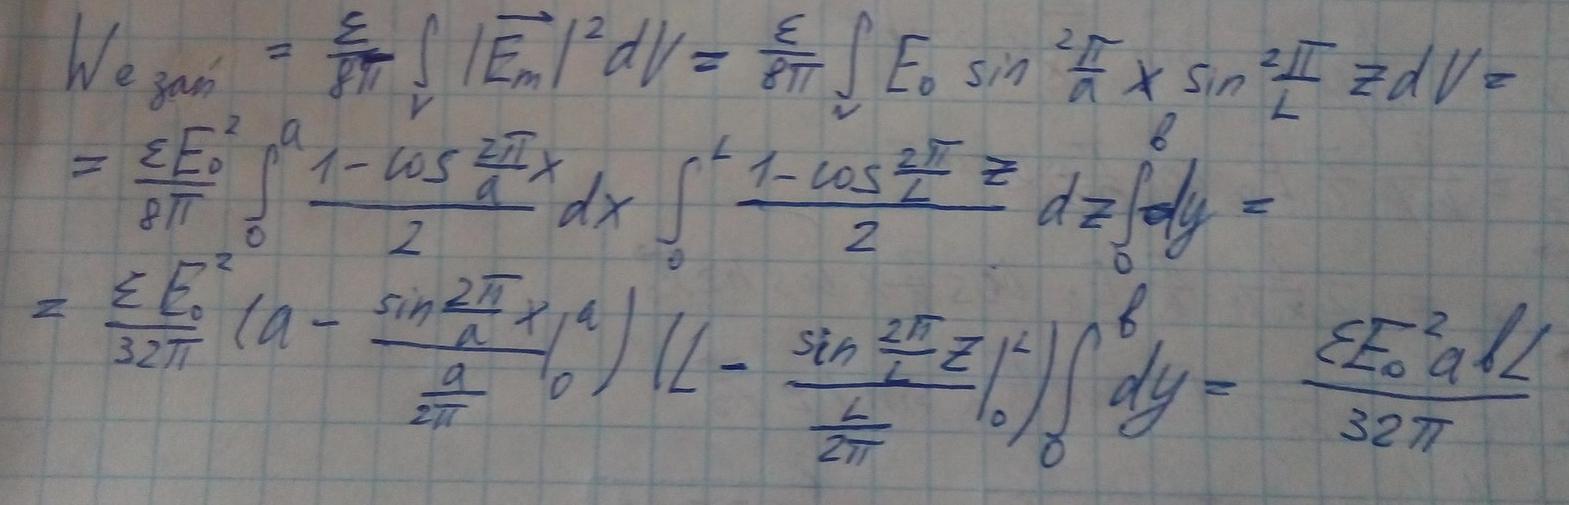 We зап = ε/8π ∫_V |E⃗_m|² dV = ε/8π ∫_V E₀ sin² π/a x sin² π/L z dV =
= εE₀²/8π ∫₀^a (1-cos 2π/a x)/2 dx ∫₀^L (1-cos 2π/L z)/2 dz ∫₀^b dy =
= εE₀²/32π (a - (sin 2π/a x)/(a/2π) |₀^a) (L - (sin 2π/L z)/(L/2π) |₀^L) ∫₀^b dy = εE₀²abL/32π